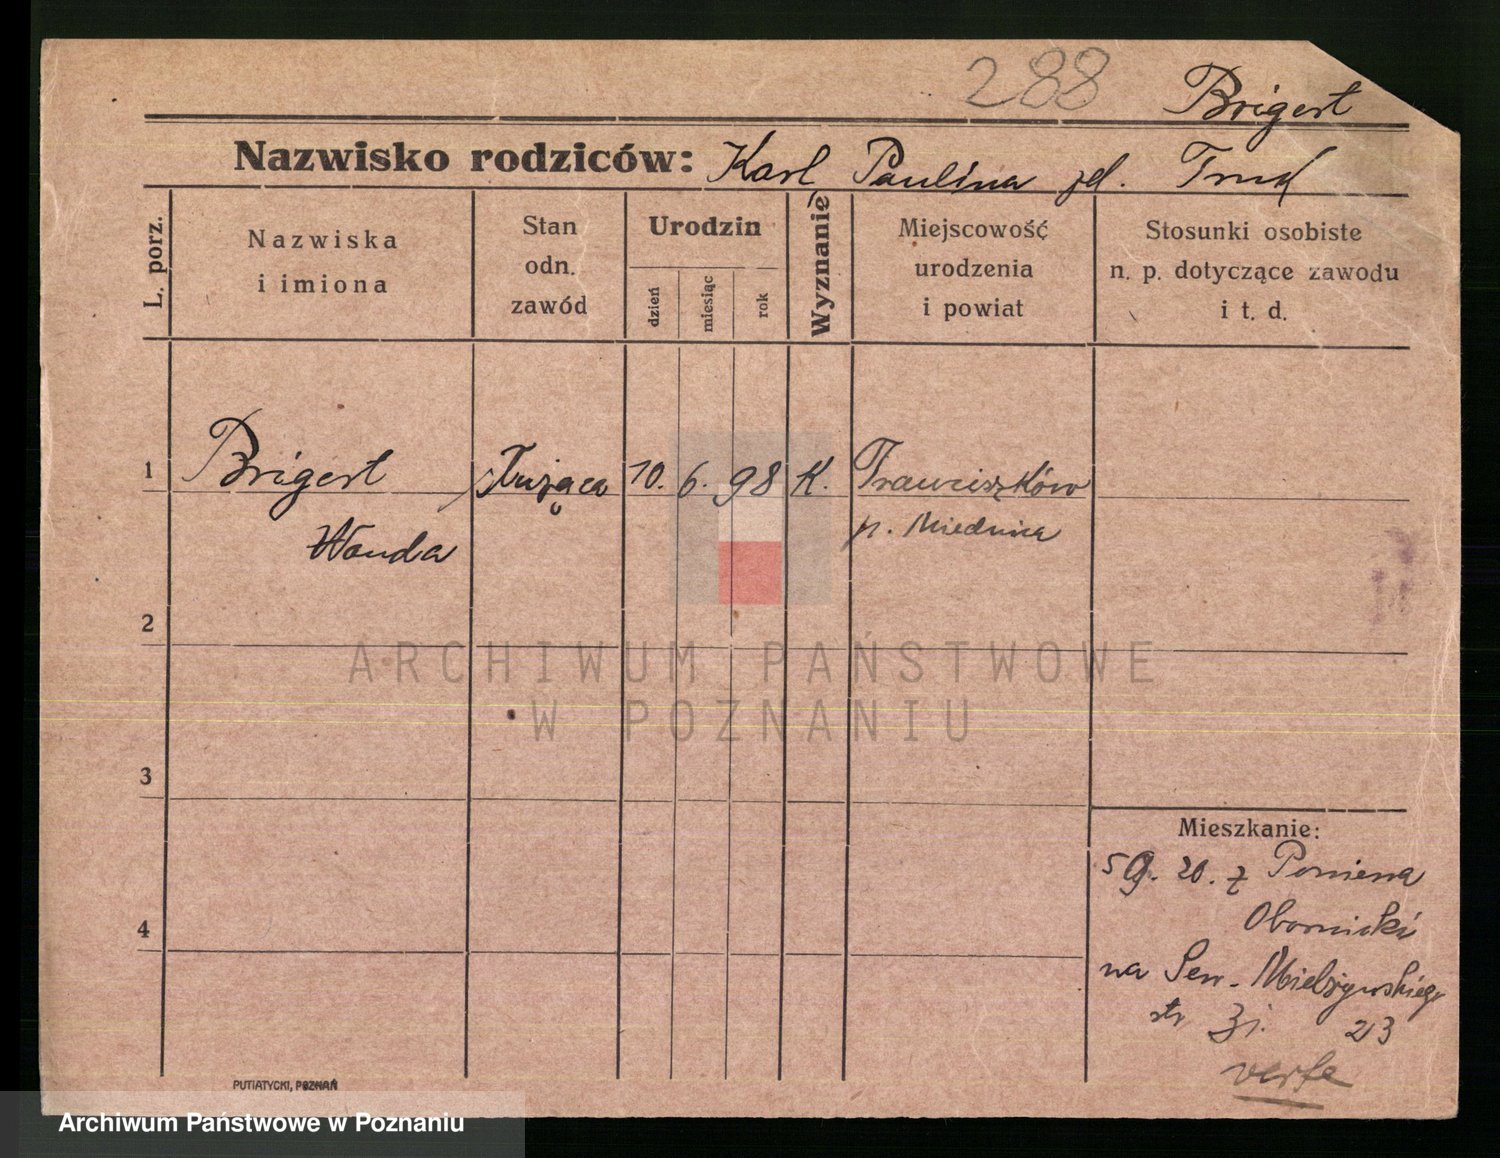 288 Brigert
Nazwisko rodziców: Karl, Paulina
L. porz.
Nazwiska
i imiona
Stan
odn.
zawód
Urodzin
dzień
miesiąc
rok
Wyznanie
Miejscowość
urodzenia
i powiat
Stosunki osobiste
n. p. dotyczące zawodu
i t. d.
1 Brigert 10. 6. 98 K. Franciszków
Wanda p. Miednica
2
ARCHIWUM PAŃSTWOWE
W POZNANIU
3
Mieszkanie:
5 9. 20. z
4
Obornicki
na Sew. Mielżyńskiego
23
PUTIATYCKI, POZNAŃ
Archiwum Państwowe w Poznaniu